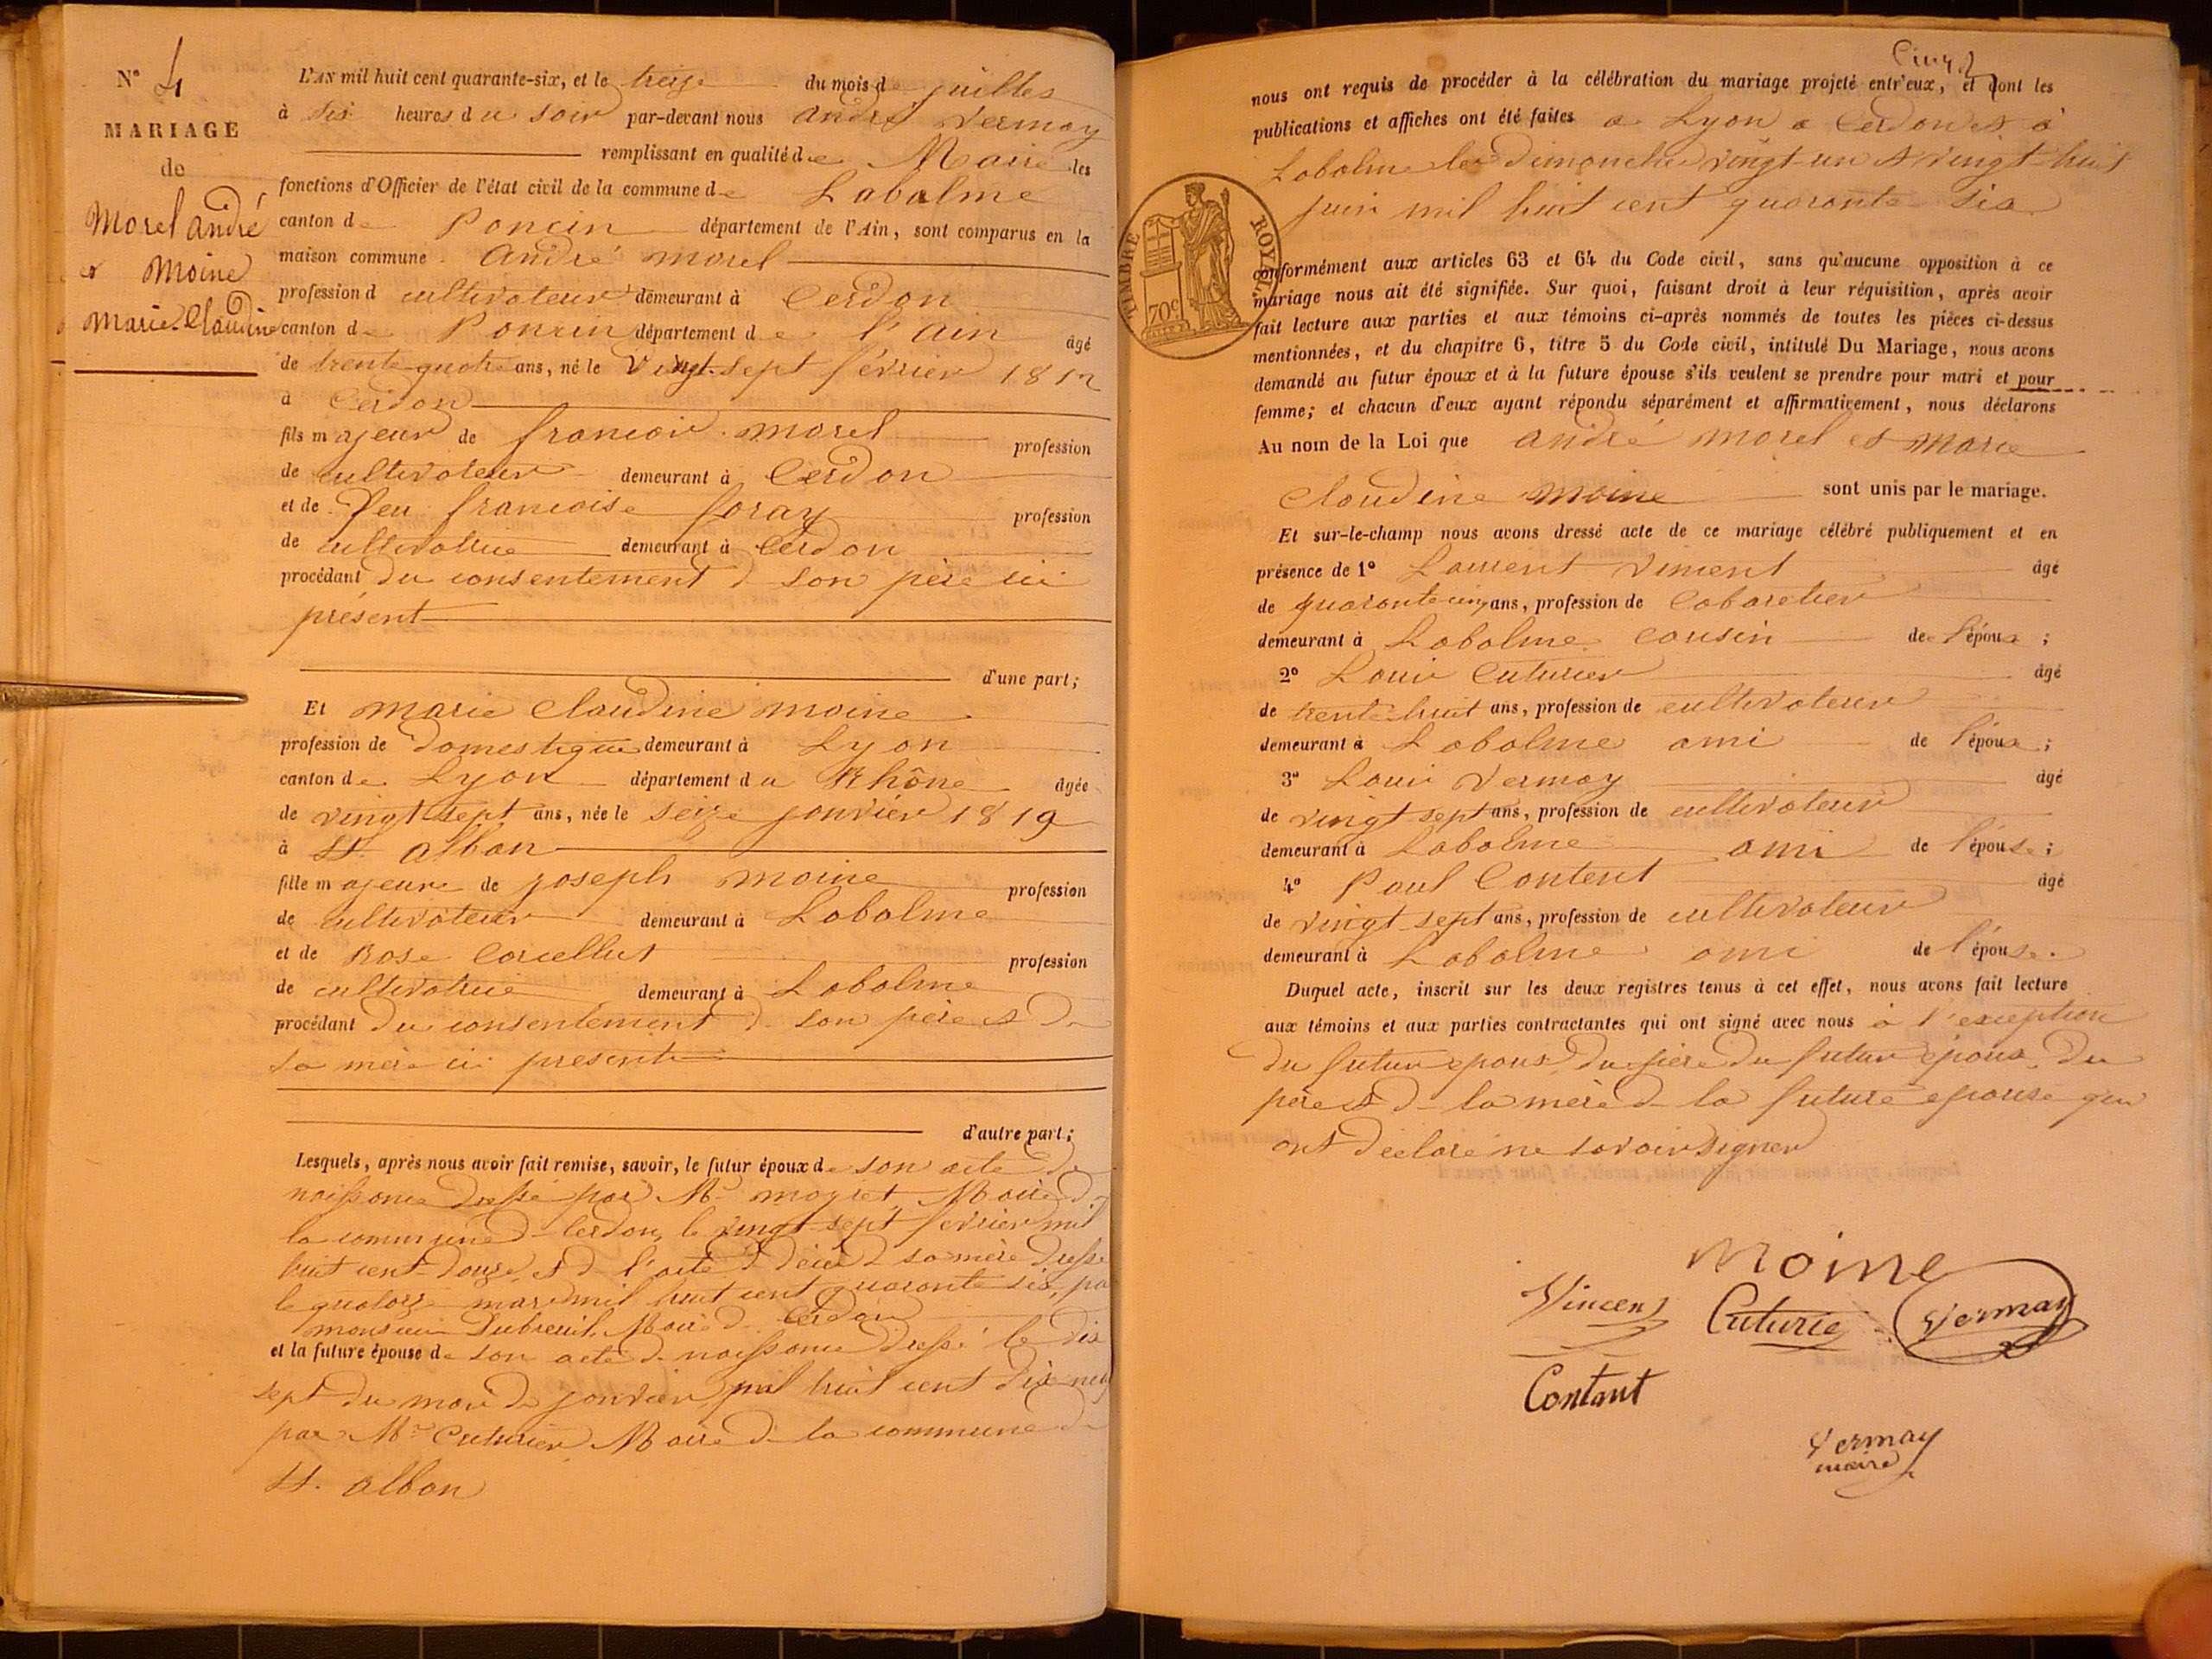 N° 4
MARIAGE
de
Morel andré
et Moine
Marie Claudine
L'AN mil huit cent quarante-six, et le treize du mois de juillet
à six heures du soir par-devant nous andré Vermay
remplissant en qualité de Maire les
fonctions d'Officier de l'état civil de la commune de Labalme
canton de Poncin département de l'Ain, sont comparus en la
maison commune André morel
profession d cultivateur demeurant à Cerdon
canton de Poncin département de l'ain âgé
de trente quatre ans, né le Vingt-sept février 1812
à Cerdon
fils majeur de francois morel profession
de cultivateur demeurant à Cerdon
et de feu francoise foray profession
de cultivatrice demeurant à Cerdon
procédant du consentement de son père ici
présent
d'une part;
Et marie Claudine moine
profession de domestique demeurant à Lyon
canton de Lyon département du Rhône âgée
de vingt sept ans, née le seize janvier 1819
à St. alban
fille majeure de joseph moine profession
de cultivateur demeurant à Labalme
et de Rose Corcellut profession
de cultivatrice demeurant à Labalme
procédant du consentement de son père et de
sa mère ici présente
d'autre part;
Lesquels, après nous avoir fait remise, savoir, le futur époux de son acte de
naissance dressé par Mr. Mr maire de
la commune de Cerdon, le vingt sept fevrier mil
huit cent douze, et de l'acte de décès de sa mère dressé
le quatorze mars mil huit cent quarante six, pa
monsieur Dubreuil, Maire de Cerdon
et la future épouse de son acte de naissance dressé le dix
sept du mois de janvier mil huit cent dix neuf
par Mr. Cuturier Maire de la commune de
St. alban
Cinq
nous ont requis de procéder à la célébration du mariage projeté entr'eux, et dont les
publications et affiches ont été faites a Lyon a Cerdon et à
Labalme les dimanches vingt-un et vingt-huit
juin mil huit cent quarante six
TIMBRE ROYAL
70c
conformément aux articles 63 et 64 du Code civil, sans qu'aucune opposition à ce
mariage nous ait été signifiée. Sur quoi, faisant droit à leur réquisition, après avoir
fait lecture aux parties et aux témoins ci-après nommés de toutes les pièces ci-dessus
mentionnées, et du chapitre 6, titre 5 du Code civil, intitulé Du Mariage, nous avons
demandé au futur époux et à la future épouse s'ils veulent se prendre pour mari et pour
femme; et chacun d'eux ayant répondu séparément et affirmativement, nous déclarons
Au nom de la Loi que andré morel et marie
Claudine moine sont unis par le mariage.
Et sur-le-champ nous avons dressé acte de ce mariage célébré publiquement et en
présence de 1° Laurent Vincent âgé
de quarante cinq ans, profession de Cabaretier
demeurant à Labalme cousin de l'époux;
2° Louis Cuturier âgé
de trente huit ans, profession de cultivateur
demeurant à Labalme ami de l'époux;
3° Louis Vermay âgé
de vingt sept ans, profession de cultivateur
demeurant à Labalme ami de l'épouse;
4° Paul Content âgé
de vingt sept ans, profession de cultivateur
demeurant à Labalme ami de l'épouse.
Duquel acte, inscrit sur les deux registres tenus à cet effet, nous avons fait lecture
aux témoins et aux parties contractantes qui ont signé avec nous à l'exception
du futur epoux, du père du futur époux, du
père et de la mère de la future epouse qui
ont déclaré ne savoir signer
Moine
Vincent Cuturie Vermay
Contant
Vermay
maire